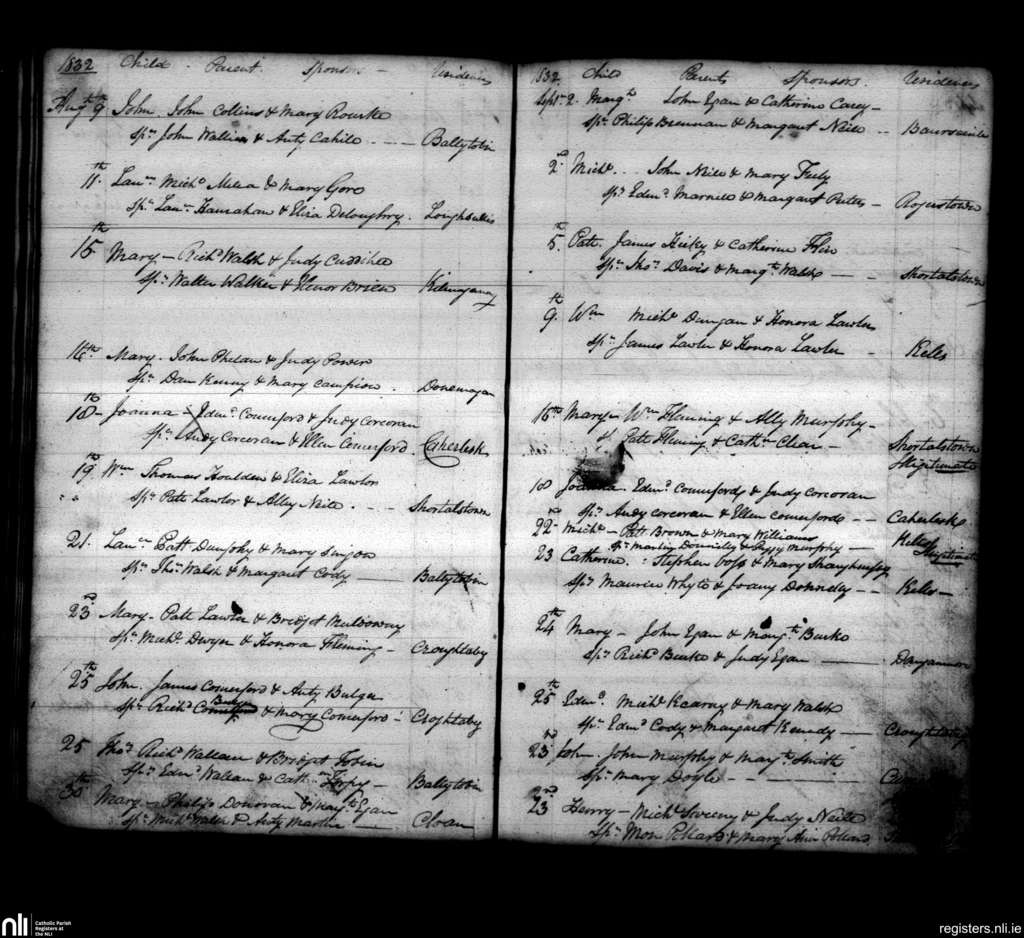 1832 Child . Parent Sponsors - Residences
Augt 9th John John Collins & Mary Rourke
Spr John Wallice & Anty Cahile . - - - Ballytobin
11th Laun Michl Mara & Mary Gore
Spr Laun Hanrahan & Eliza Deloughry.
15th Mary - Richd Walsh & Judy Cuddiha
Spr Walter Walker & Elenor Brien
16th Mary. John Phelan & Judy Power
Spr Dan Kenny & Mary Campion . Donemagan
18th - Joanna - Edmd Comerford & Judy Corcoran
Spr Andy Corcoran & Ellen Comerford . Caherlesk
19th Wm Thomas Houlden & Eliza Lawlor
" " Spr Patt Lawlor & Alley Neile . - - - Shortalstown
21. Laun Patt Dunphy & Mary
Spr Thos Walsh & Margaret Cody - Ballytobin
23rd Mary - Patt Lawlor & Bridget Muldowny
Spr Michl Dwyer & Honora Fleming - Croughtaby
25th John. James Comerford & Anty Bulger
Spr Richd Bulger & Mary Comerford - Croghtaby
25 Thos Richd Wallace & Bridget Tobin
Spr Edmd Wallace & Cathn - Ballytobin
30th Mary - Philip Donovan & Margt Egan
Spr Michl & Anty Martin - Cloan
1832 Child Parents Sponsors. Residences
Septr 2. Margt John Egan & Catherine Carey -
Spr Philip Brennan & Margaret Neile - -
2d Michl . . John Neile & Mary
Spr Edmd & Margaret - Rogerstown
5th Patt. James Hickey & Catherine
Spr Thos Davis & Margt Walsh - - Shortalstown
9th Wm Michl Dungan & Honora Lawler
Spr James Lawler & Honora Lawler - Kells
16th Mary - Wm Fleming & Ally Murphy -
Sp Patt Fleming & Cathn - Shortalstown
Illigitimate
18 Joanna. Edmd Comerford & Judy Corcoran
Spr Andy Corcoran & Ellen Comerford - - Caherlesk
22nd - Michl - Patt Brown & Mary Williams Kells
Spr Martin Donnelly & Peggy Murphy - Illigitimate
23 Catherine. Stephen & Mary
Spr Maurice Whyte & Joany Donnelly - - Kells -
24th Mary - John Egan & Margt Burke
Spr Richd Burke & Judy Egan -
25th Edmd Michl Kearny & Mary Walsh
Spr Edmd Cody & Margaret Kenedy - Croughtaby
23rd John. John Murphy & Margt Smith
Spr Mary Doyle - - -
23rd Henry - Michl Sweeny & Judy Neile
Spr & Mary Ann
nli Catholic Parish
Registers at
the NLI
registers.nli.ie